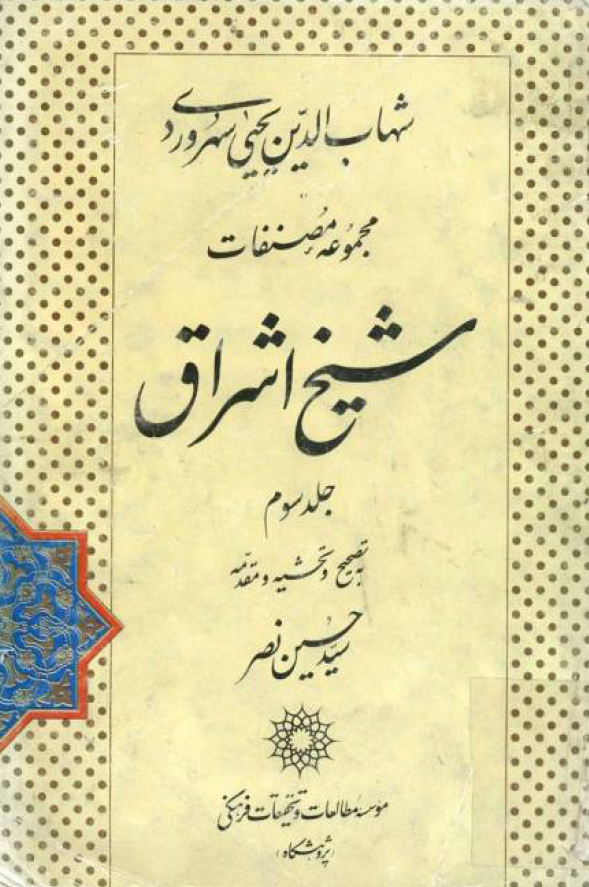 شهاب الدّین یحیی سهروردی
مجموعهٔ مُصنفات
شیخ اشراق
جلد سوم
به تصحیح و تحشیه و مقدّمه
سیّد حُسین نصر
مؤسسه مطالعات و تحقیقات فرهنگی
(پژوهشگاه)